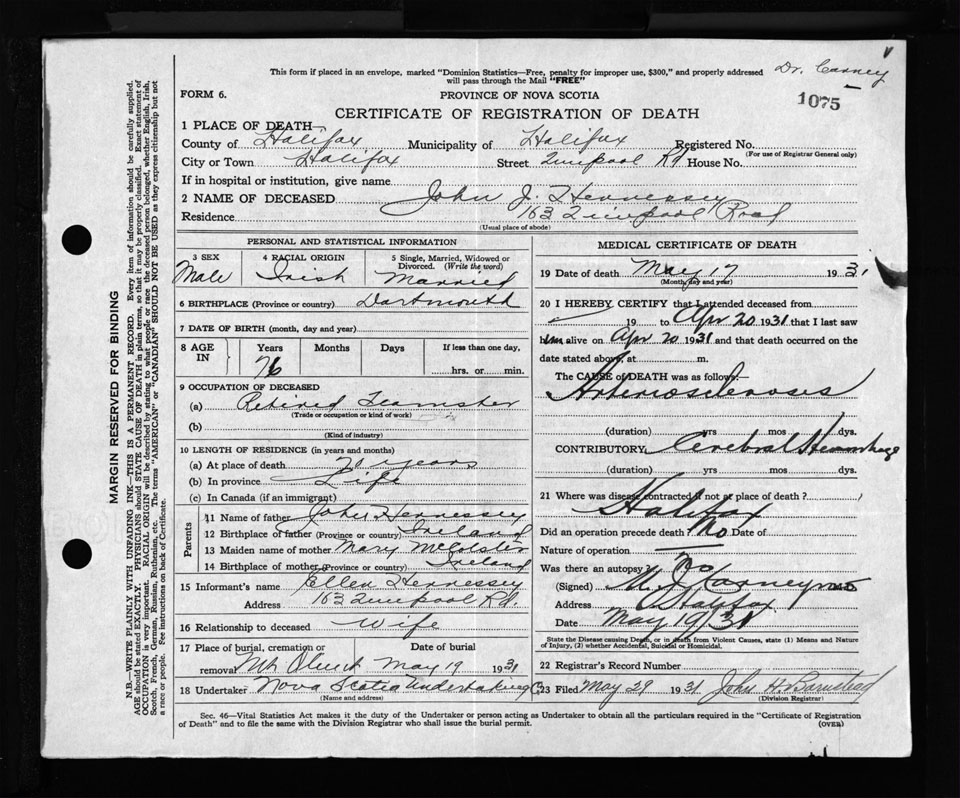 Dr. Carney
This form if placed in an envelope, marked "Dominion Statistics—Free, penalty for improper use, $300," and properly addressed
will pass through the Mail "FREE"
1075
FORM 6.
PROVINCE OF NOVA SCOTIA
CERTIFICATE OF REGISTRATION OF DEATH
1 PLACE OF DEATH—
County of Halifax Municipality of Halifax Registered No.
(For use of Registrar General only)
City or Town Halifax Street Quinpool Rd House No.
If in hospital or institution, give name
2 NAME OF DECEASED John J. Hennessey
Residence 163 Quinpool Road
(Usual place of abode)
PERSONAL AND STATISTICAL INFORMATION
3 SEX 4 RACIAL ORIGIN 5 Single, Married, Widowed or
Divorced. (Write the word)
Male Irish Married
6 BIRTHPLACE (Province or country) Dartmouth
7 DATE OF BIRTH (month, day and year)
8 AGE IN Years Months Days If less than one day,
76 hrs. or min.
9 OCCUPATION OF DECEASED
(a) Retired Teamster
(Trade or occupation or kind of work)
(b)
(Kind of industry)
10 LENGTH OF RESIDENCE (in years and months)
(a) At place of death 70 years
(b) In province Life
(c) In Canada (if an immigrant)
Parents
11 Name of father John Hennessey
12 Birthplace of father (Province or country) Ireland
13 Maiden name of mother Mary
14 Birthplace of mother (Province or country) Ireland
15 Informant's name Ellen Hennessey
Address 163 Quinpool Rd.
16 Relationship to deceased Wife
17 Place of burial, cremation or Date of burial
removal Mt Olivet May 19 1931
18 Undertaker Nova Scotia Undertaking Co
(Name and address)
MEDICAL CERTIFICATE OF DEATH
19 Date of death May 17 1931
(Month, day and year)
20 I HEREBY CERTIFY that I attended deceased from
19 to Apr 20 1931 that I last saw
him alive on Apr 20 1931 and that death occurred on the
date stated above, at m.
The CAUSE of DEATH was as follows:—
Arteriosclerosis
(duration) yrs mos dys.
CONTRIBUTORY Cerebral Hemorrhage
(duration) yrs mos dys.
21 Where was disease contracted if not at place of death?
Halifax
Did an operation precede death? No Date of
Nature of operation
Was there an autopsy? No
(Signed) M. J. Carney M.D.
Address Halifax
Date May 19/31
State the Disease causing Death, or in death from Violent Causes, state (1) Means and Nature
of Injury, (2) whether Accidental, Suicidal or Homicidal.
22 Registrar's Record Number
23 Filed May 29 1931 John H. Barnstead
(Division Registrar)
Sec. 46—Vital Statistics Act makes it the duty of the Undertaker or person acting as Undertaker to obtain all the particulars required in the "Certificate of Registration
of Death" and to file the same with the Division Registrar who shall issue the burial permit.
(OVER)
MARGIN RESERVED FOR BINDING
N.B.—WRITE PLAINLY WITH UNFADING INK—THIS IS A PERMANENT RECORD. Every item of information should be carefully supplied.
AGE should be stated EXACTLY. PHYSICIANS should STATE CAUSE OF DEATH in plain terms, so that it may be properly classified. Exact statement of
OCCUPATION is very important. RACIAL ORIGIN will be described by stating to what people or race the deceased person belonged, whether English, Irish,
Scotch, French, German, Russian, Ruthenian, etc. The terms "AMERICAN" or "CANADIAN" SHOULD NOT BE USED as they express citizenship but not
a race or people. See instructions on back of Certificate.